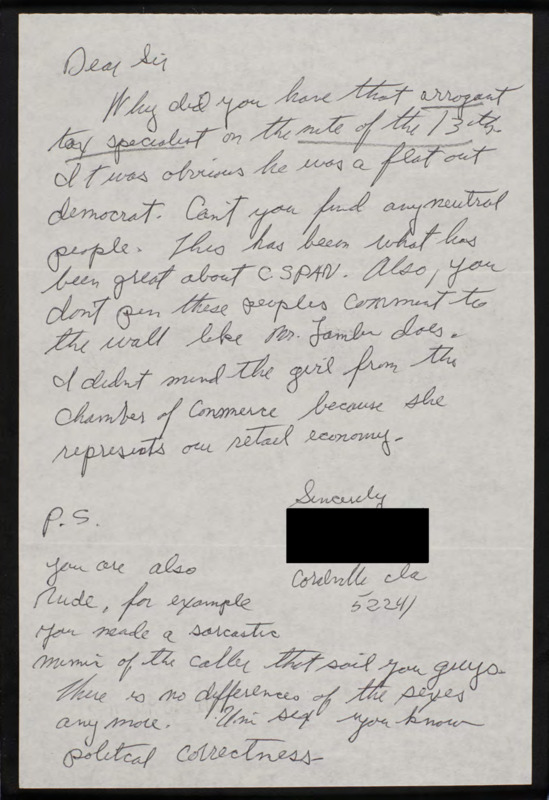 Dear Sir
Why did you have that arrogant
tax specialist on the nite of the 13th.
It was obvious he was a flat out
democrat. Can't you find any neutral
people. This has been what has
been great about CSPAN. Also, you
don't pin these peoples comment to
the wall like Mr. Lamb does.
I didnt mind the girl from the
Chamber of Commerce because she
represents our retail economy.
Sincerely
Coralville Ia
52241
P.S.
you are also
Rude, for example
you made a sarcastic
mimic of the caller that said you guys.
There is no differences of the sexes
any more. Uni sex you know
political correctness